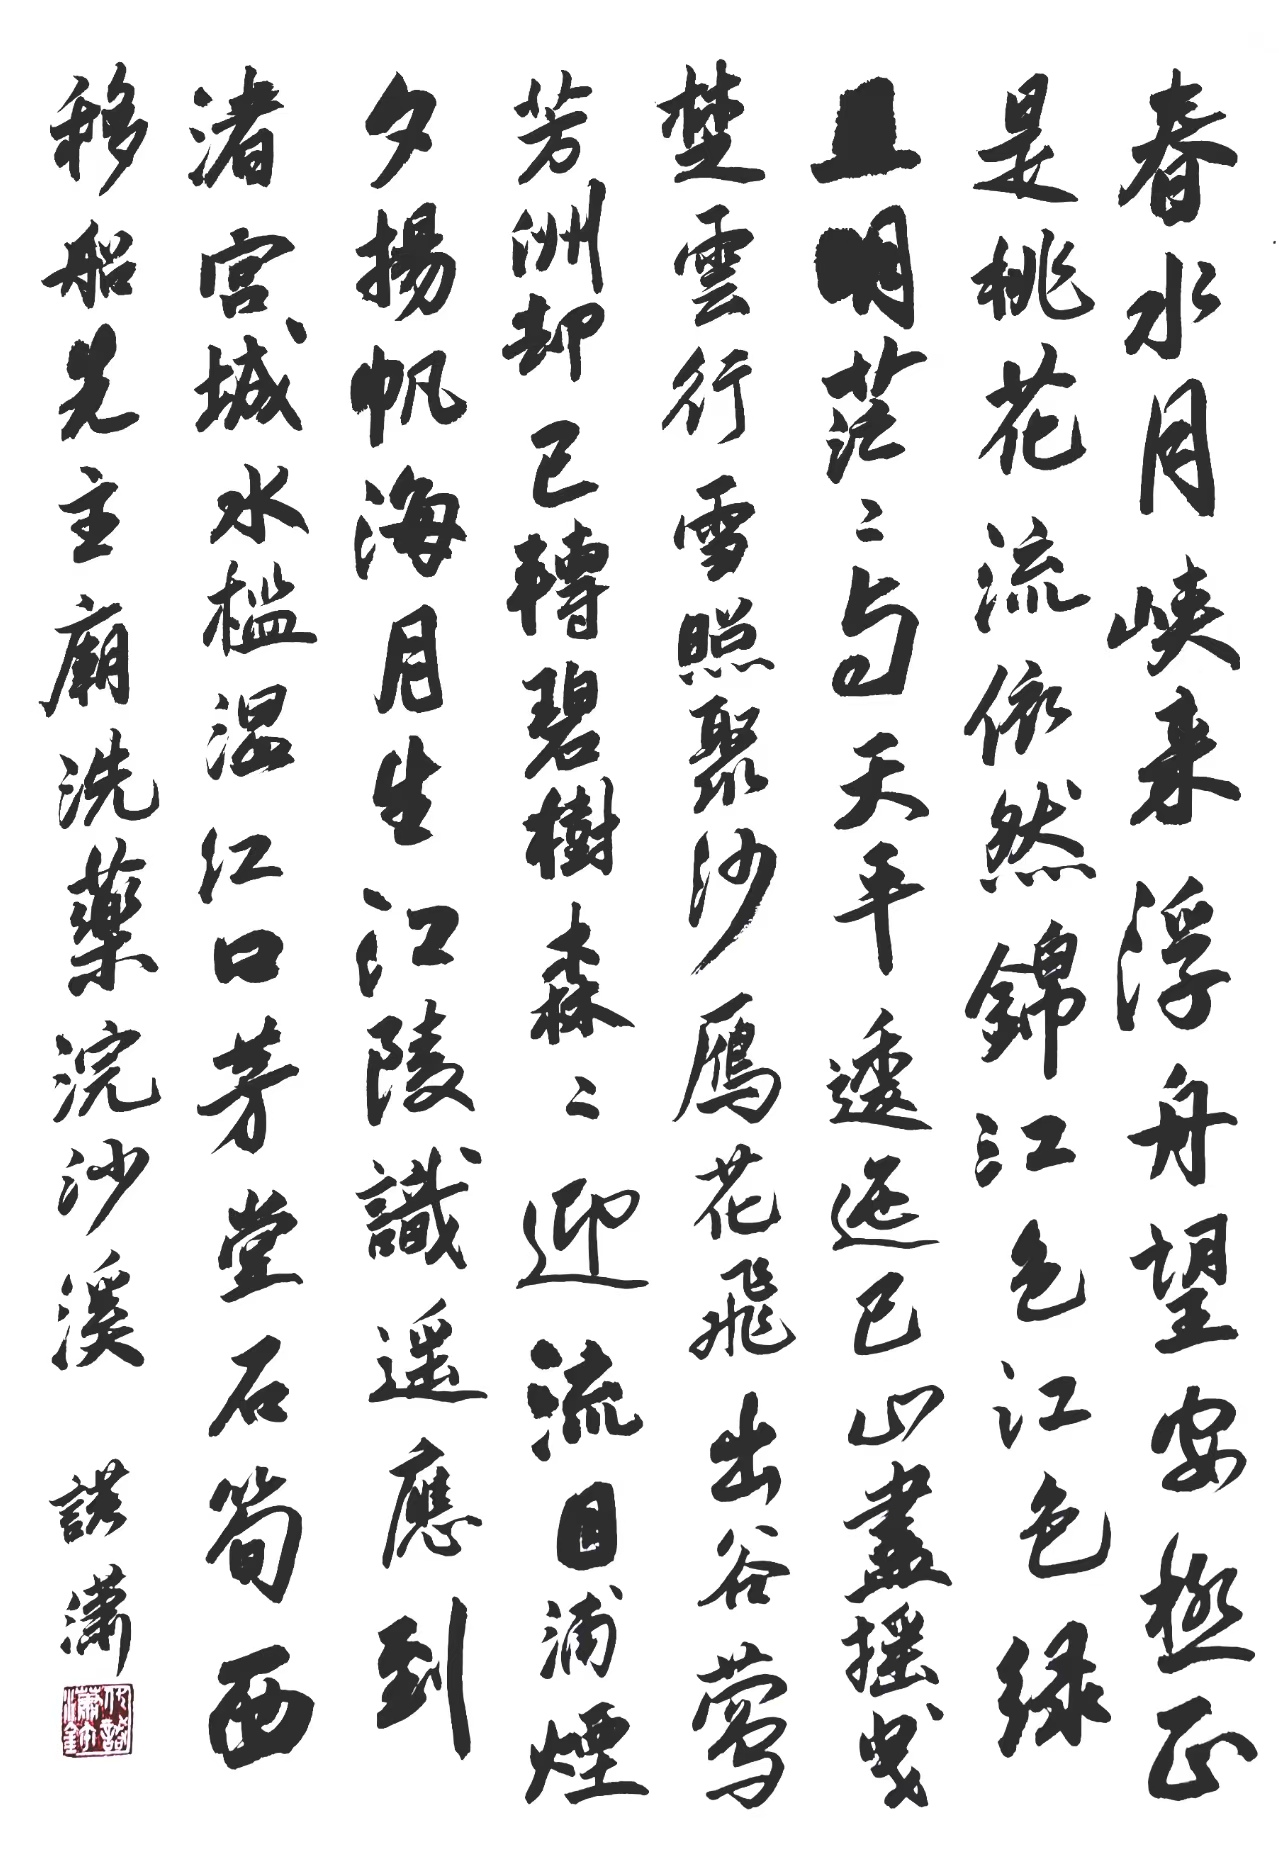 春水月峡来浮舟望安極正
是桃花流依然錦江色江色绿
且明茫〻与天平逶迤巴山盡摇曳
楚雲行雪照聚沙雁花飛出谷莺
芳洲却已轉碧樹森〻迎流目浦煙
夕揚帆海月生江陵識遥應到
渚宫城水槛温江口芳堂石筍西
移船先主廟洗藥浣沙溪 諾瀟